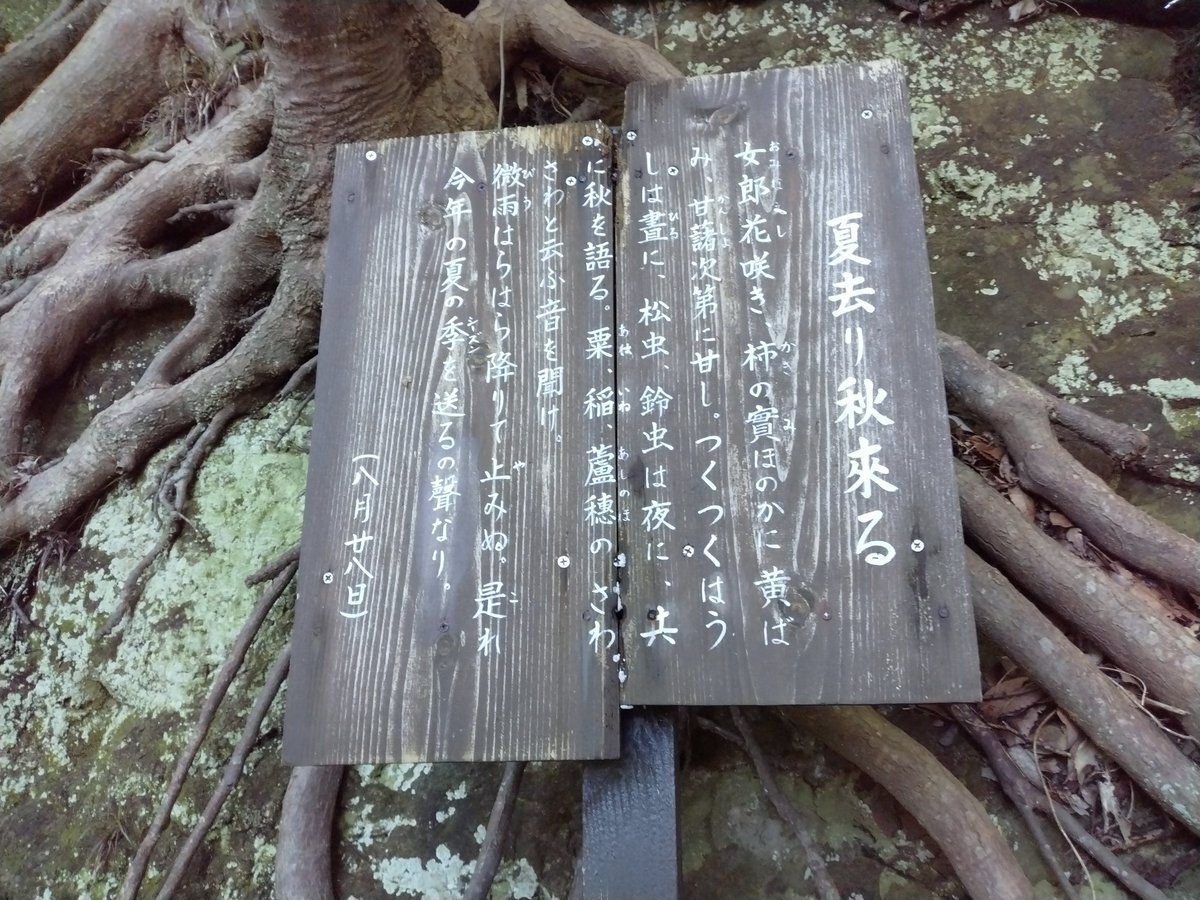 夏去り秋來る
女郎花咲き、柿の實ほのかに黄ば
み、甘藷次第に甘し。つくつくはう
しは晝に、松虫、鈴虫は夜に、共
に秋を語る。粟、稲、蘆穂のさわ
さわと云ふ音を聞け。
微雨はらはら降りて止みぬ。是れ
今年の夏の季を送るの聲なり。
(八月廿八日)